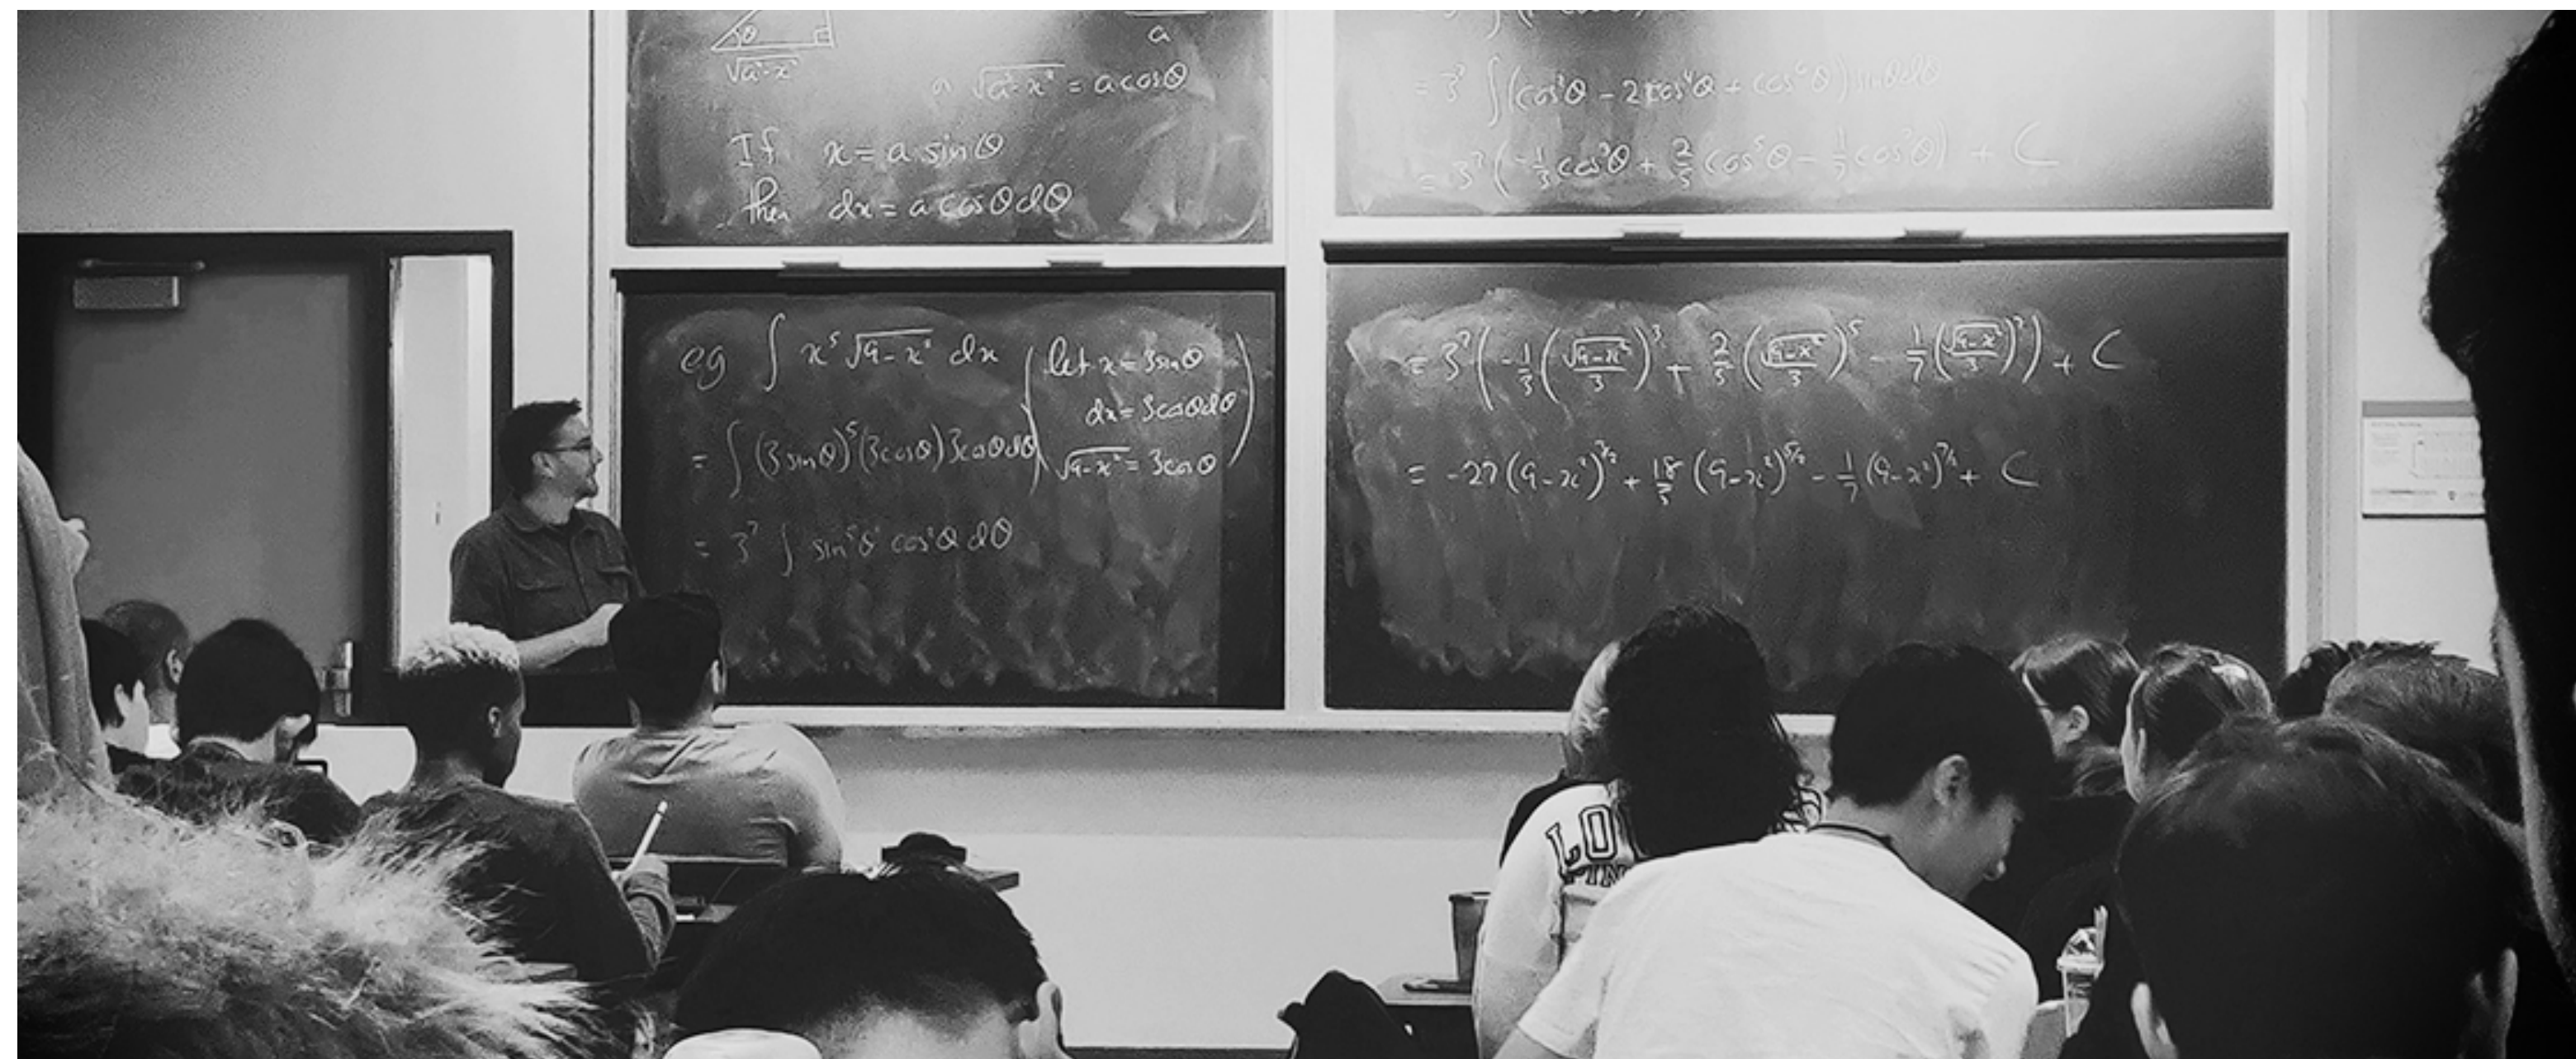 θ
√a²-x²
a
√a²-x² = a cosθ
If x = a sinθ
then dx = a cosθdθ
eg ∫ x⁵ √9-x² dx (let x = 3sinθ
dx = 3cosθdθ
√9-x² = 3cosθ)
= ∫ (3sinθ)⁵(3cosθ)3cosθdθ
= 3⁷ ∫ sin⁵θ cos²θ dθ
= 3⁷ ∫(cos²θ - 2cos⁴θ + cos⁶θ) sinθdθ
= 3⁷ (-1/3 cos³θ + 2/5 cos⁵θ - 1/7 cos⁷θ) + C
= 3⁷ (-1/3 (√9-x²/3)³ + 2/5 (√9-x²/3)⁵ - 1/7 (√9-x²/3)⁷) + C
= -27(9-x²)^3/2 + 18/5 (9-x²)^5/2 - 1/7 (9-x²)^7/2 + C